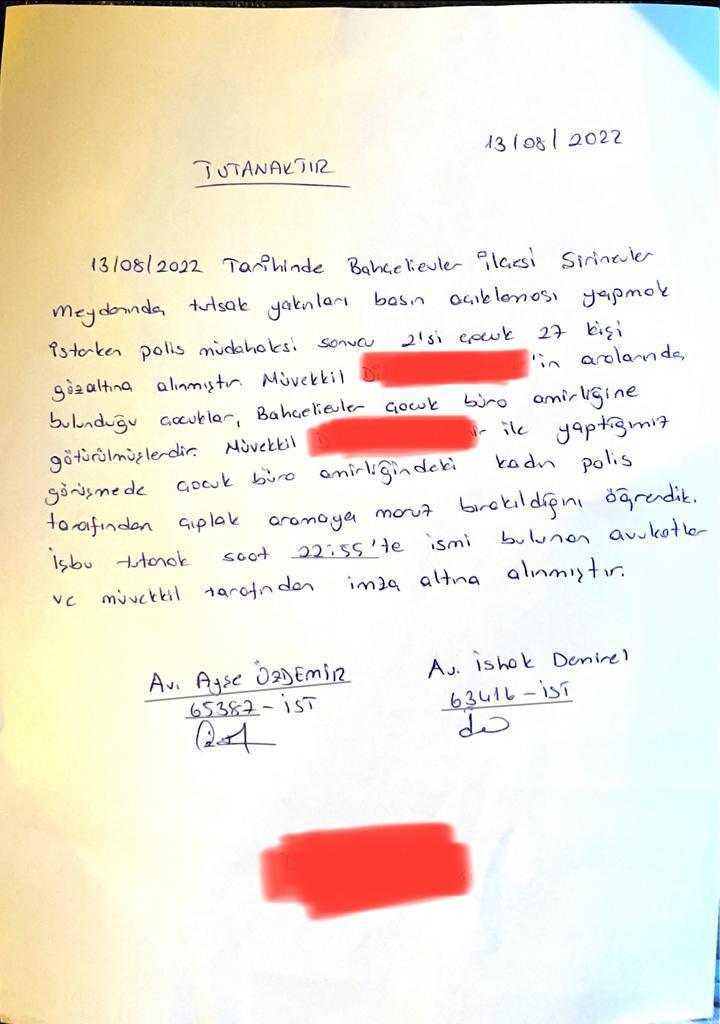 13/08/2022
TUTANAKTIR
13/08/2022 Tarihinde Bahçelievler ilçesi Şirinevler
meydanında tutsak yakınları basın açıklaması yapmak
isterken polis müdahalesi sonucu 2'si çocuk 27 kişi
gözaltına alınmıştır. Müvekkil 'in aralarında
bulunduğu çocuklar, Bahçelievler çocuk büro amirliğine
götürülmüşlerdir. Müvekkil ile yaptığımız
görüşmede çocuk büro amirliğindeki kadın polis
tarafından çıplak aramaya maruz bırakıldığını öğrendik.
İşbu tutanak saat 22:55'te ismi bulunan avukatlar
ve müvekkil tarafından imza altına alınmıştır.
Av. Ayşe ÖZDEMİR
65387-İST
Av. İshak Demirel
63416-İST